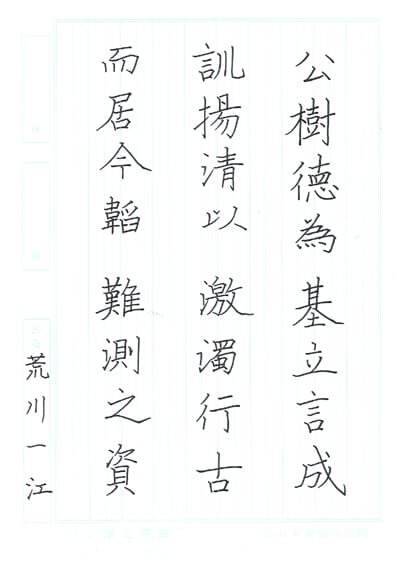 公樹德為基立言成
訓揚清以激濁行古
而居今韜難測之資
荒川一江